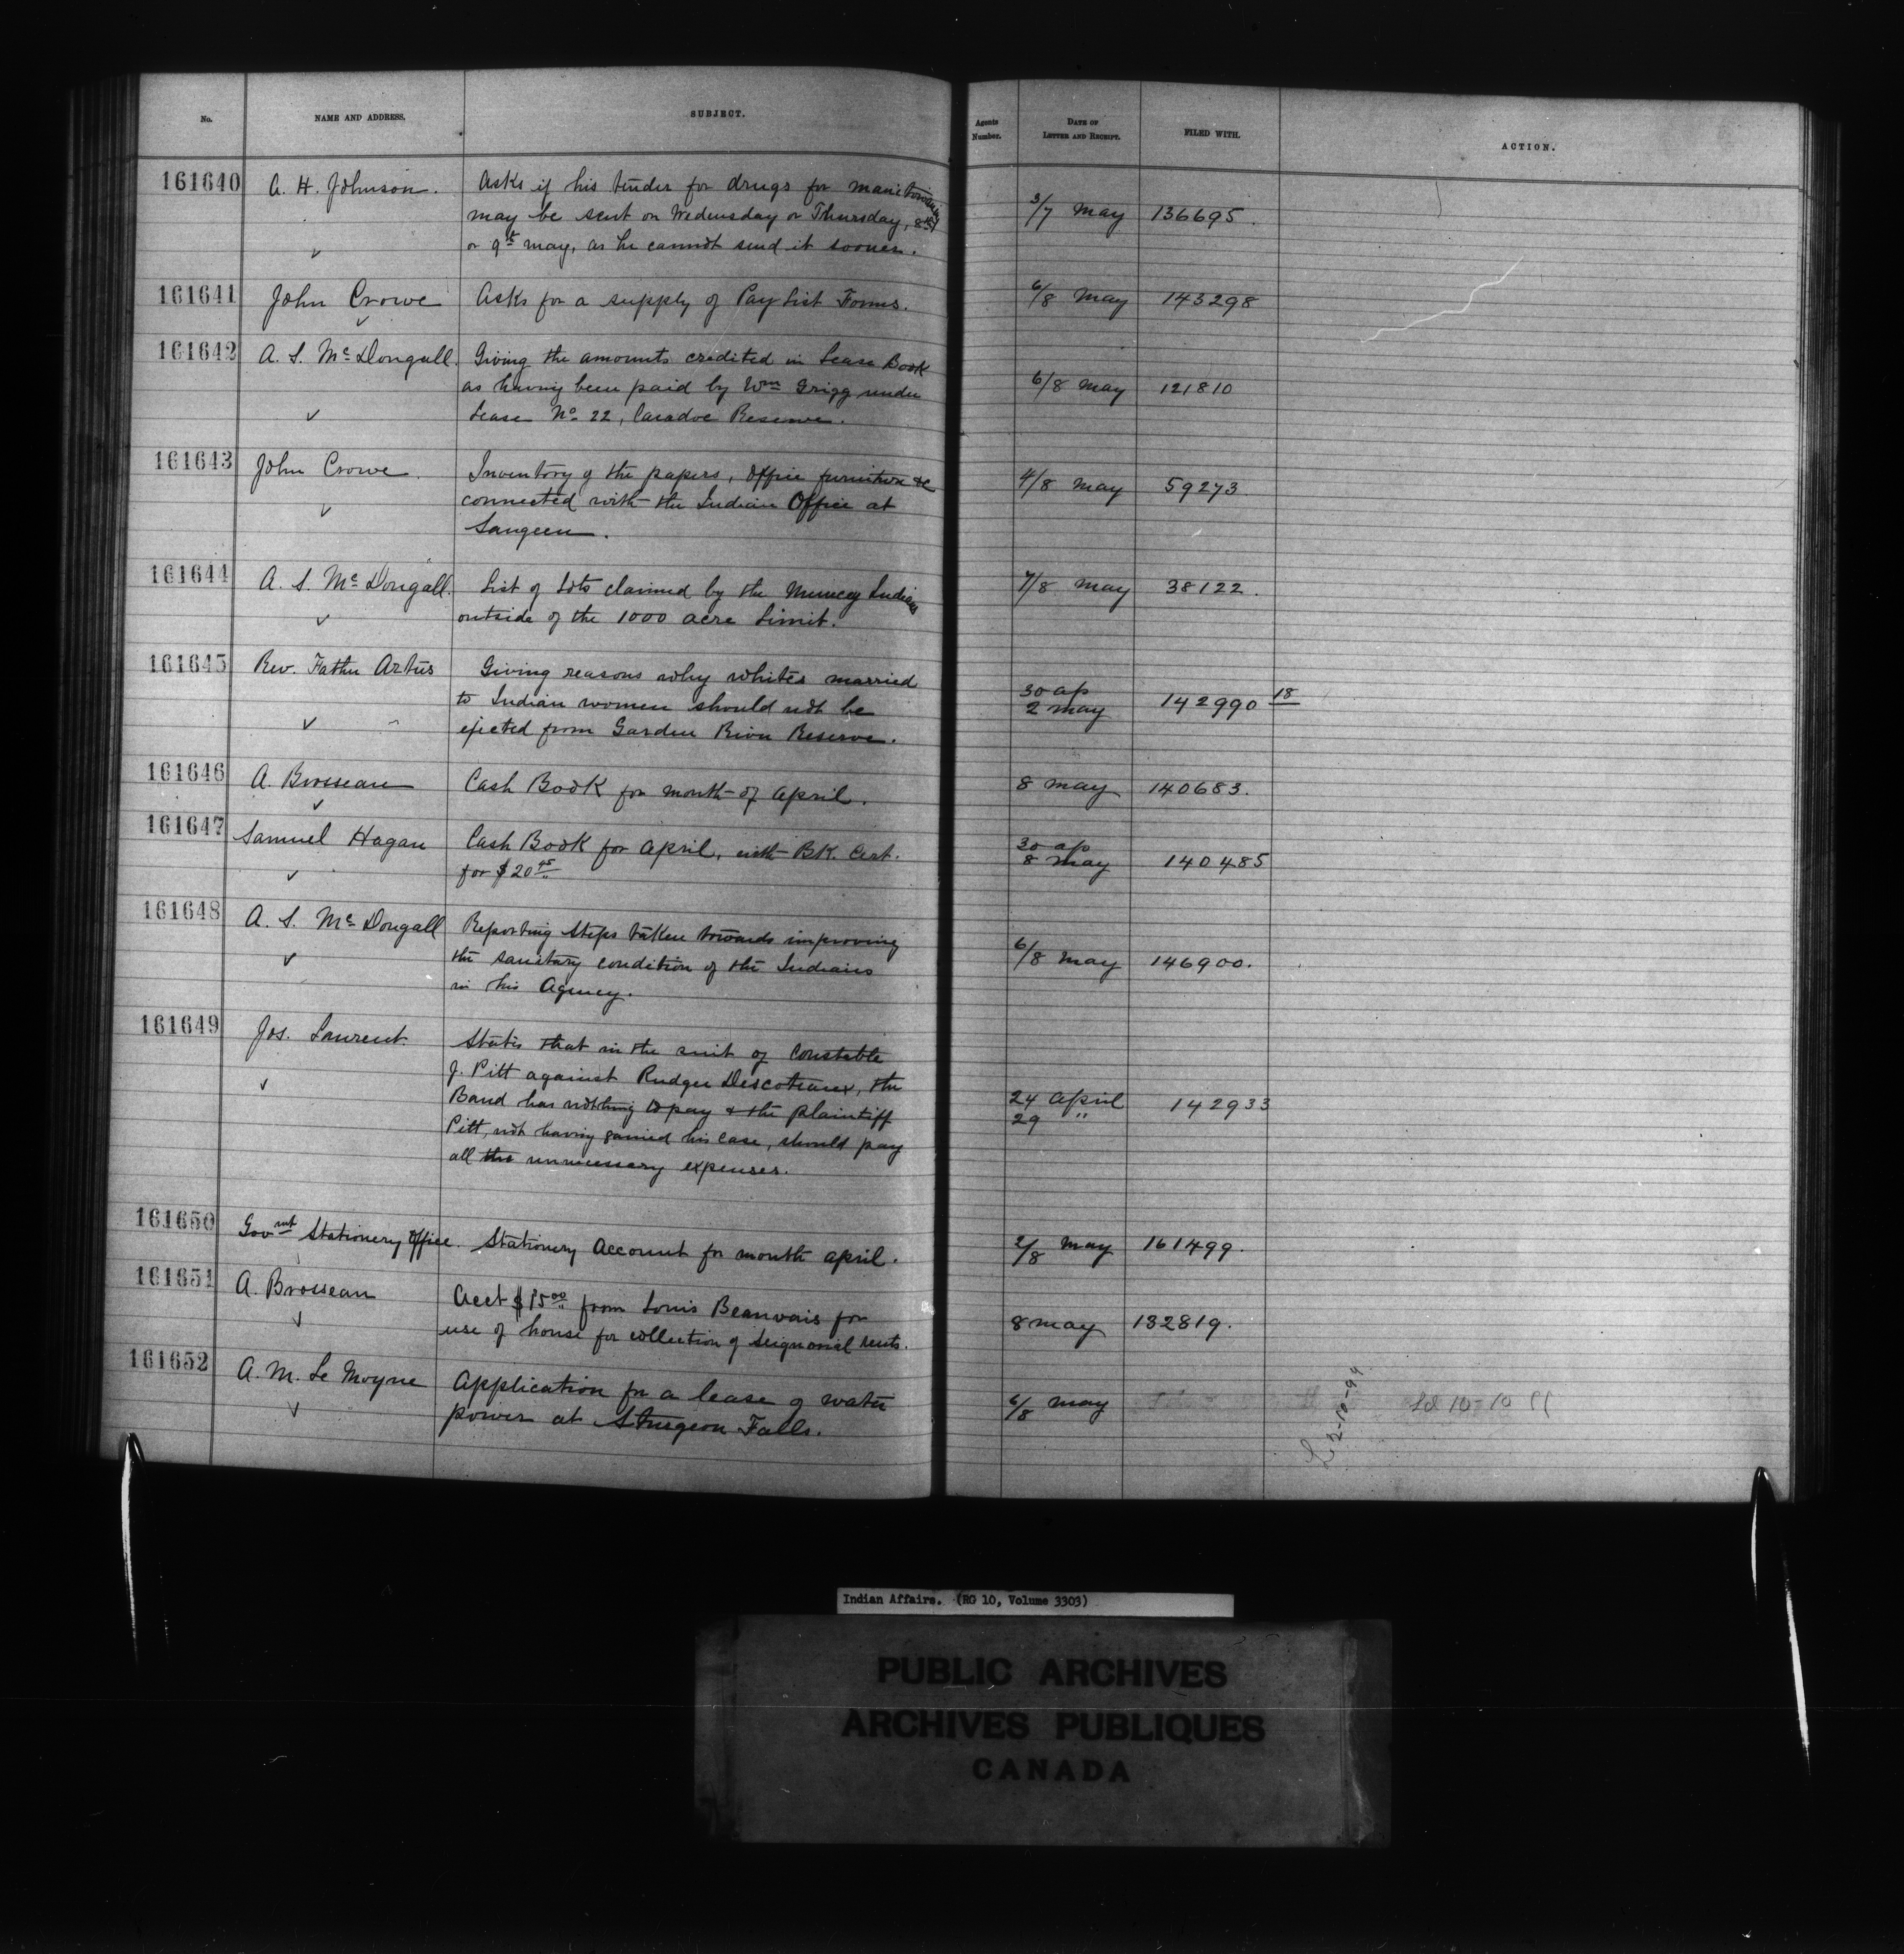 No. NAME AND ADDRESS. SUBJECT. Agents Number. DATE OF LETTER AND RECEIPT. FILED WITH. ACTION.
161640 A. H. Johnson. Asks if his tender for drugs for Manitowaning
may be sent on Wednesday or Thursday, 8th 3/7 May 136695.
or 9th May, as he cannot send it sooner.
161641 John Crowe Asks for a supply of Pay List Forms. 6/8 May 143298
161642 A. S. McDougall. Giving the amounts credited in Lease Book
as having been paid by Wm Grigg under 6/8 May 121810
Lease No 22, Caradoc Reserve.
161643 John Crowe. Inventory of the papers, office furniture &c 4/8 May 59273.
connected with the Indian Office at
Saugeen.
161644 A. S. McDougall. List of lots claimed by the Muncey Indians 7/8 May 38122.
outside of the 1000 acre limit.
161645 Rev. Father Artus Giving reasons why whites married
to Indian women should not be 30 ap 2 May 142990 18
ejected from Garden River Reserve.
161646 A. Brosseau Cash Book for month of April. 8 May 140683.
161647 Samuel Hagan Cash Book for April, with BK. Cert. 30 ap 8 May 140485
for $20 45
161648 A. S. McDougall Reporting steps taken towards improving
the sanitary condition of the Indians 6/8 May 146900.
in his Agency.
161649 Jos. Laurent. States that in the suit of Constable
J. Pitt against Rudger Descoteaux, the
Band has nothing to pay & the plaintiff 24 April 29 " 142933
Pitt, not having gained his case, should pay
all the unnecessary expenses.
161650 Govmt Stationery Office. Stationery Account for month April. 2/8 May 161499.
161651 A. Brosseau Acct $15 00 from Louis Beauvais for
use of house for collection of seignorial rents. 8 May 132819.
161652 A. M. Le Moyne Application for a lease of water 6/8 May
power at Sturgeon Falls.
Indian Affairs. (RG 10, Volume 3303)
PUBLIC ARCHIVES
ARCHIVES PUBLIQUES
CANADA